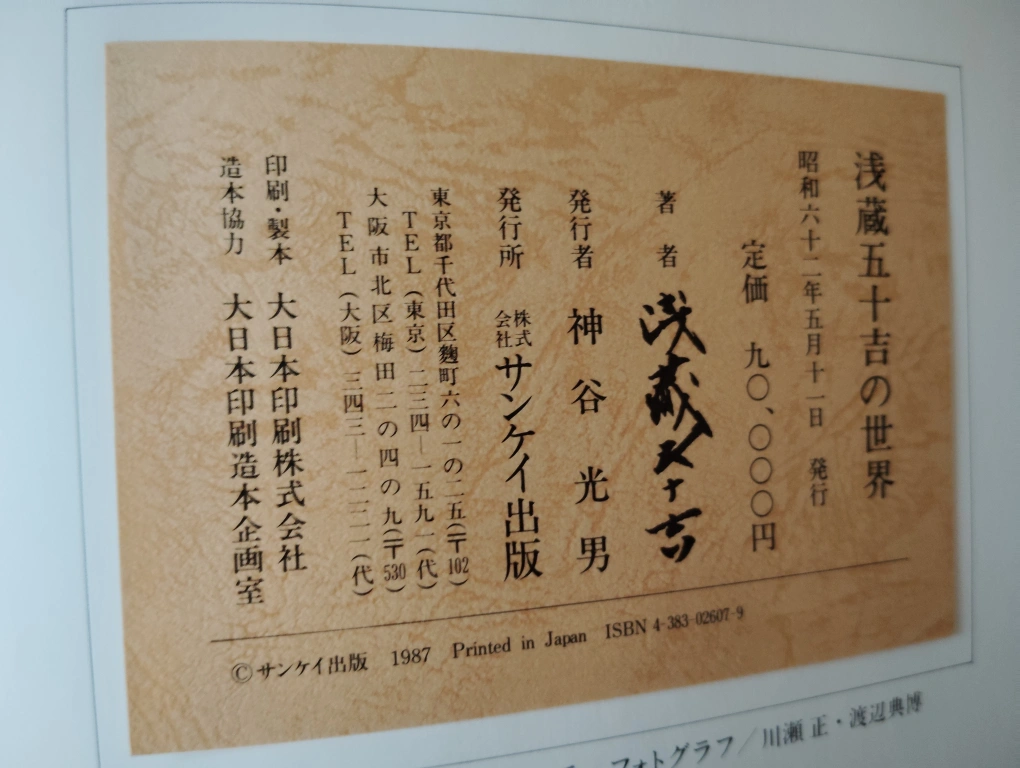 浅蔵五十吉の世界
昭和六十二年五月十一日　発行
定価　九〇、〇〇〇円
著者　浅蔵五十吉
発行者　神谷光男
発行所　株式会社サンケイ出版
東京都千代田区麹町六の一の二五(〒102)
TEL(東京)二三四―一五九一(代)
大阪市北区梅田二の四の九(〒530)
TEL(大阪)三四三―一二二一(代)
印刷・製本　大日本印刷株式会社
造本協力　大日本印刷造本企画室
©サンケイ出版　1987　Printed in Japan　ISBN 4-383-02607-9
フォトグラフ／川瀬 正・渡辺典博